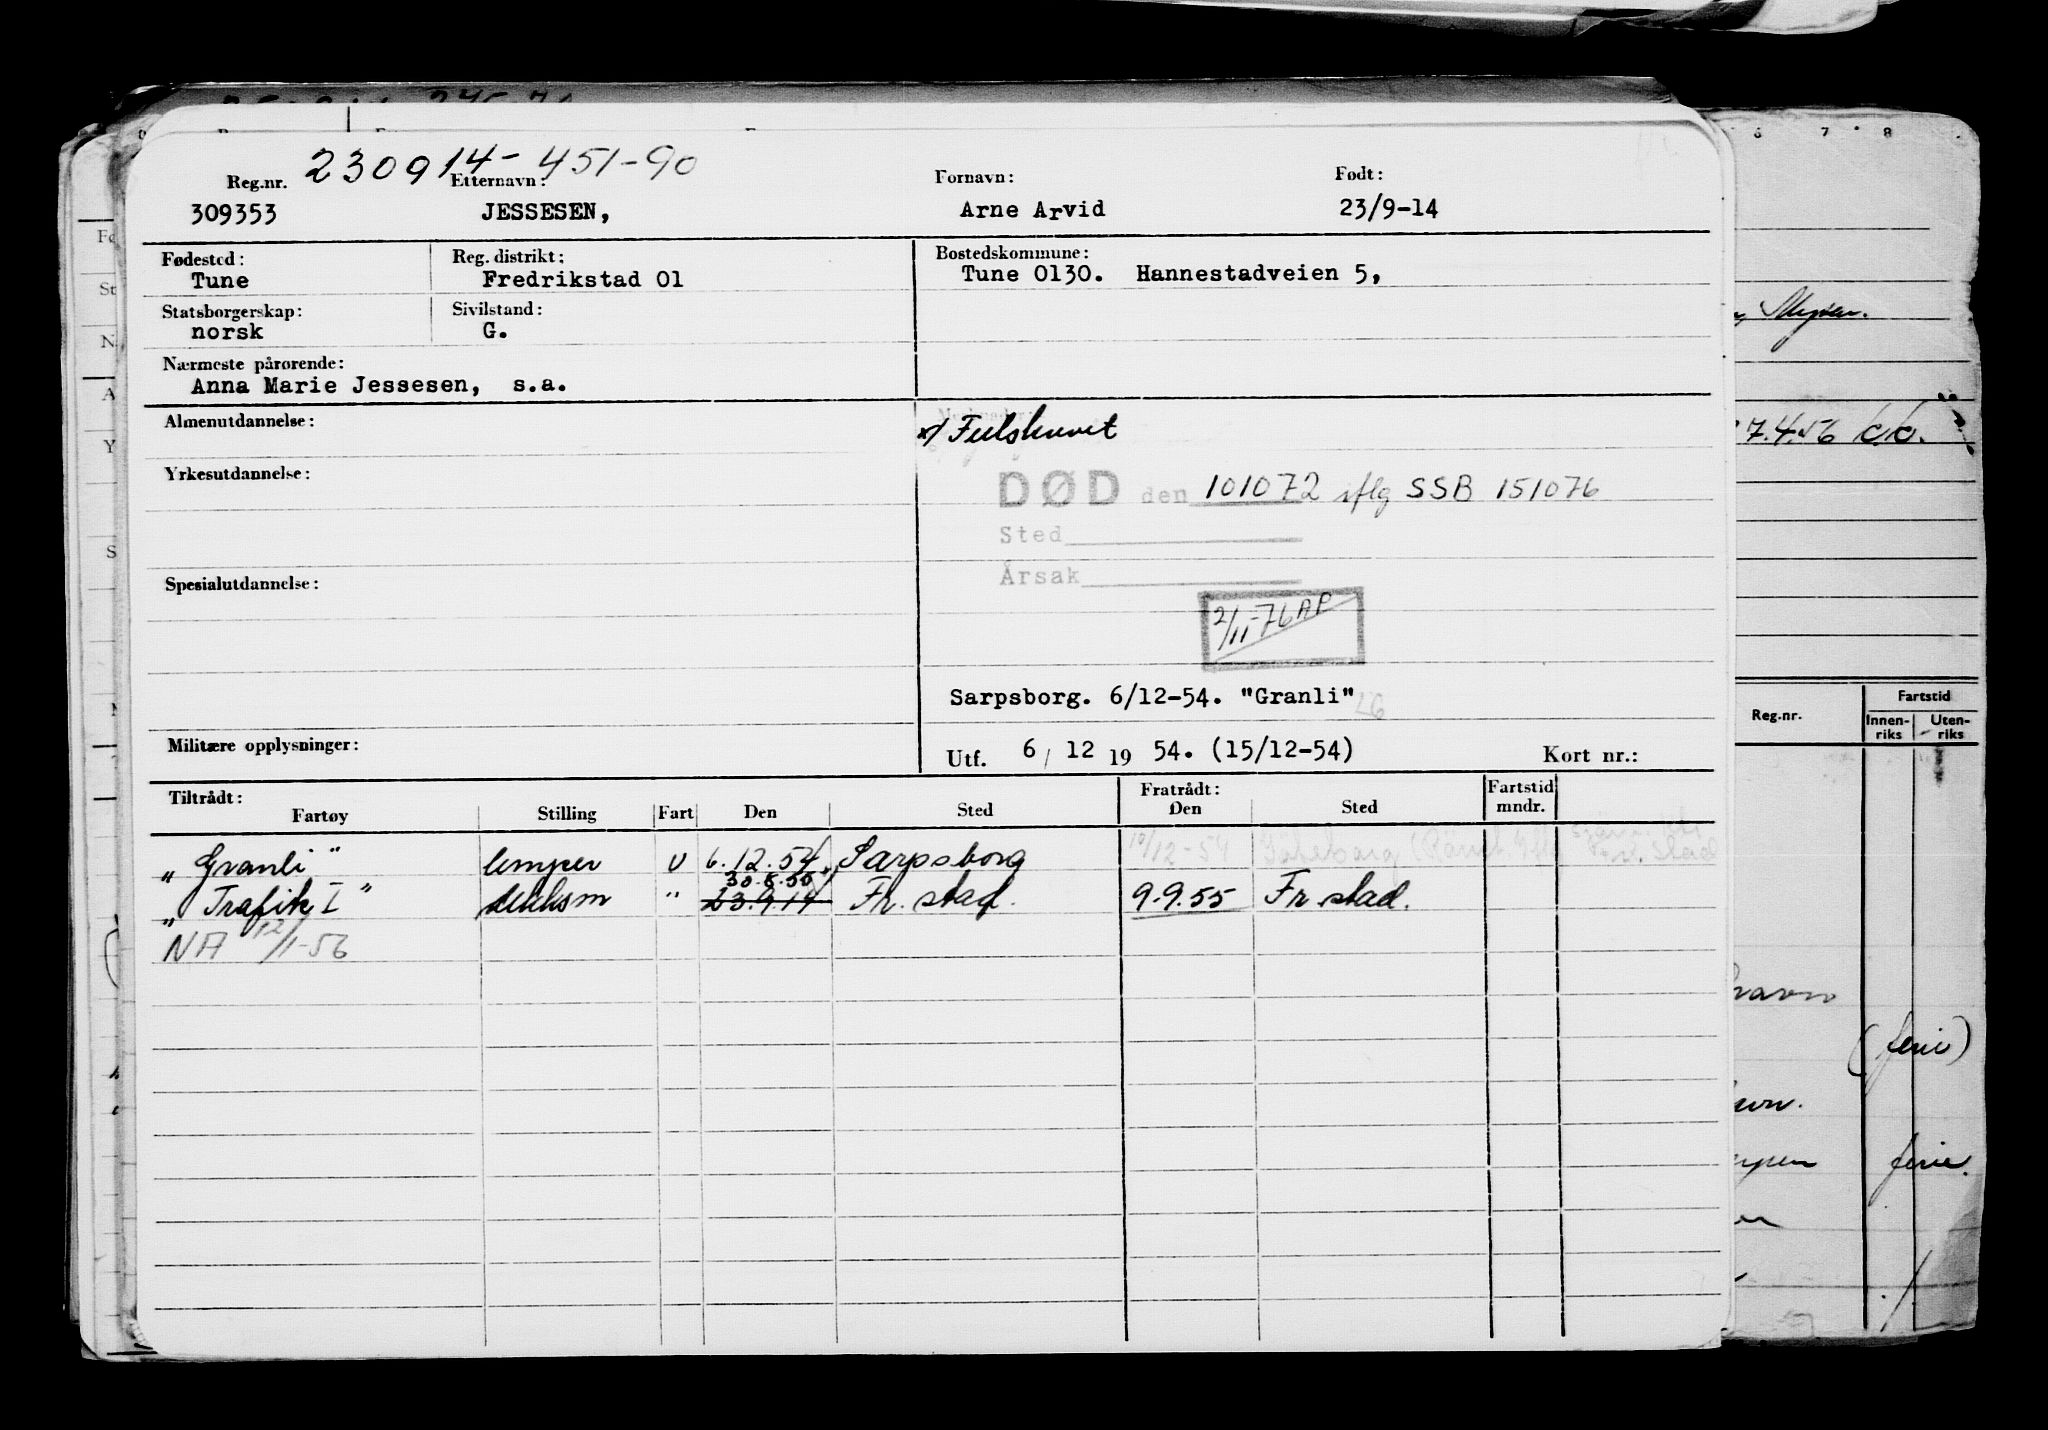 230914-451-90
Reg.nr. Etternavn: Fornavn: Født:
309353 JESSESEN, Arne Arvid 23/9-14
Fødested: Reg. distrikt: Bostedskommune:
Tune Fredrikstad 01 Tune 0130. Hannestadveien 5,
Statsborgerskap: Sivilstand:
norsk G.
Nærmeste pårørende:
Anna Marie Jessesen, s.a.
Almenutdannelse:
x/ Feilskrevet
Yrkesutdannelse:
DØD den 101072 iflg SSB 151076
Sted
Årsak
Spesialutdannelse:
2/11-76 AP
Sarpsborg. 6/12-54. "Granli"
Militære opplysninger:
Utf. 6 / 12 19 54. (15/12-54) Kort nr.:
Tiltrådt: Fratrådt: Fartstid
Fartøy Stilling Fart Den Sted Den Sted mndr.
"Granli" lemper U 6.12.54 Sarpsborg 10/12-54
30.8.55 x/
"Trafik I" dekksm " 23.9.14 Fr.stad. 9.9.55 Fr.stad.
NA 12/1-56
6 7 8
Mysen.
27.4.56
Reg.nr. Fartstid
Innen-riks Uten-riks
(ferie)
ferie.